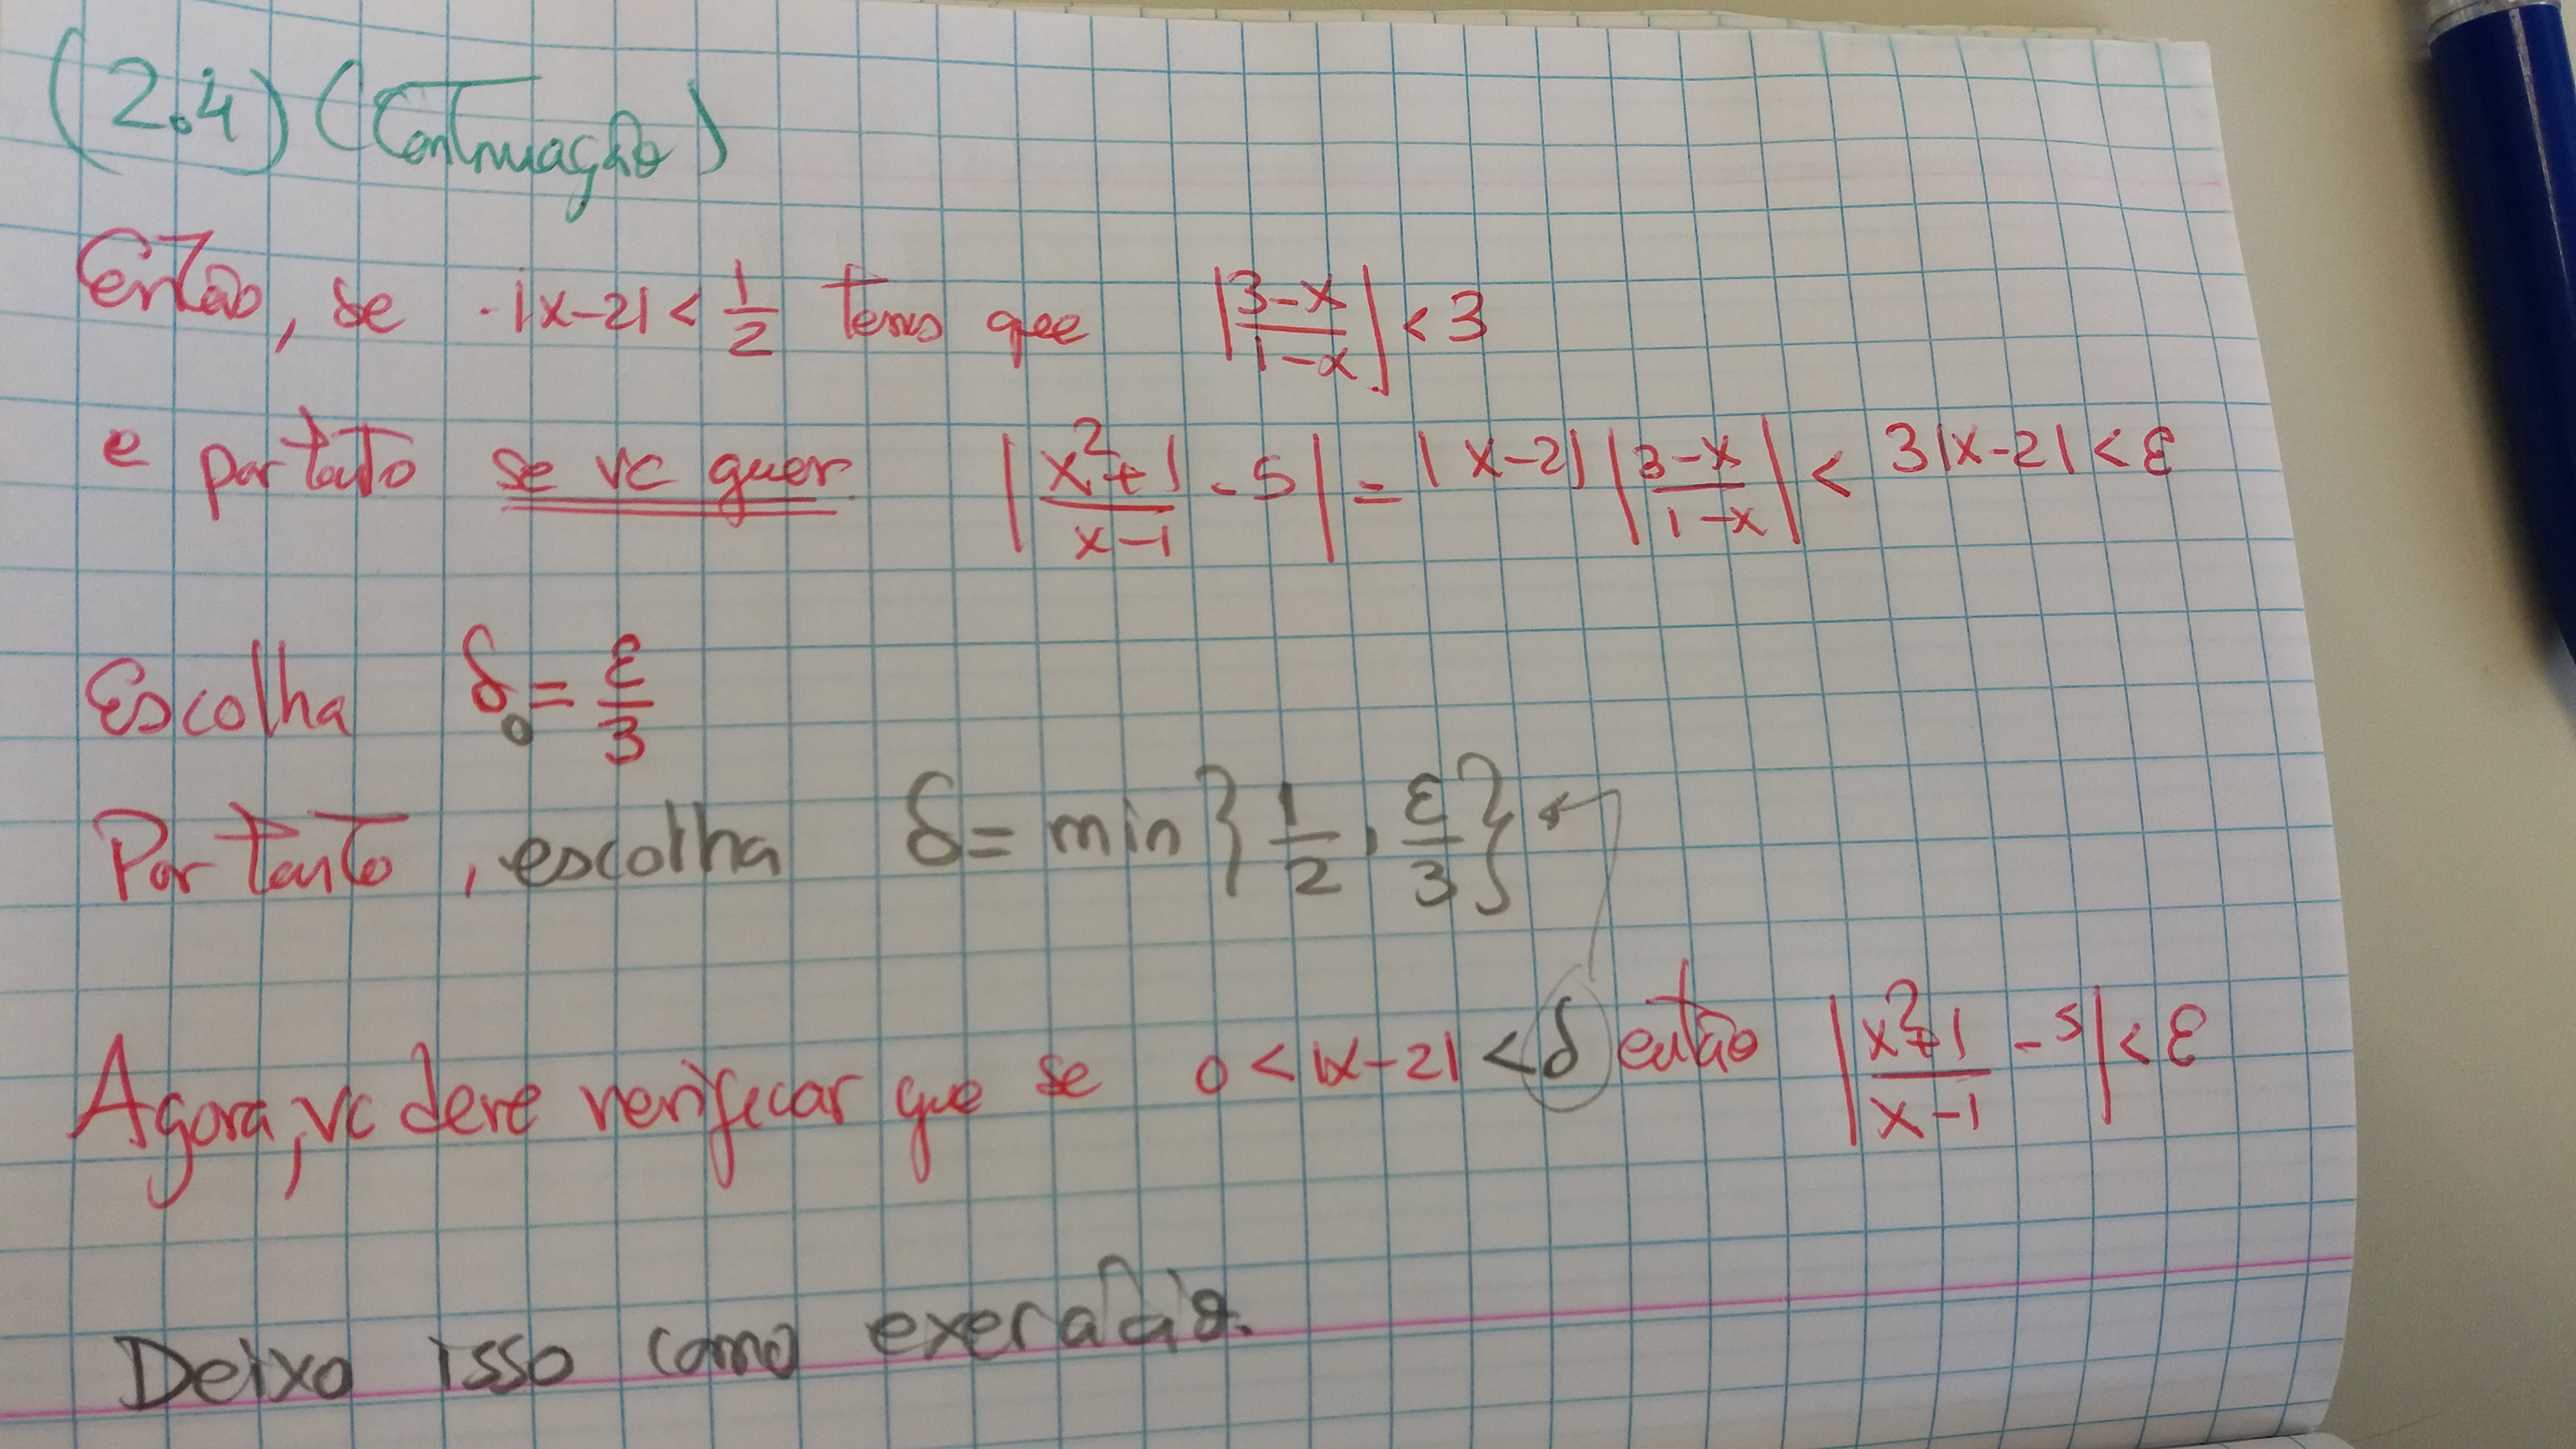 (2.4) (Continuação)
Então, se |x-2| < 1/2 temos que |(3-x)/(1-x)| < 3
e portanto se vc quer |(x²+1)/(x-1) - 5| = |x-2| |(3-x)/(1-x)| < 3|x-2| < ε
Escolha δ₀ = ε/3
Portanto, escolha δ = min {1/2, ε/3}
Agora, vc deve verificar que se 0 < |x-2| < δ então |(x²+1)/(x-1) - 5| < ε
Deixo isso como exercício.